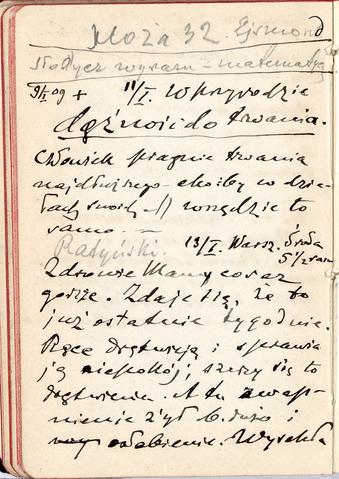 Hoża 32. Ejsmond
słodycz wyrazu – matematyk
9/I 09 + 11/I. W przyrodzie
dążność do trwania.
Człowiek pragnie trwania
najdłuższego choćby w dzie-
łach swoich // wszędzie to
samo –
Ratyński. 13/I. Warsz. Środa
5 1/2 rano
Zdrowie Mamy coraz
gorsze. Zdaje się, że to
już ostatnie tygodnie.
Ręce drętwieją i sprawia
ją niepokój, szerzy się to
drętwienie. A tu zwap-
nienie żył b. dużo i
osłabienie. Wyschła